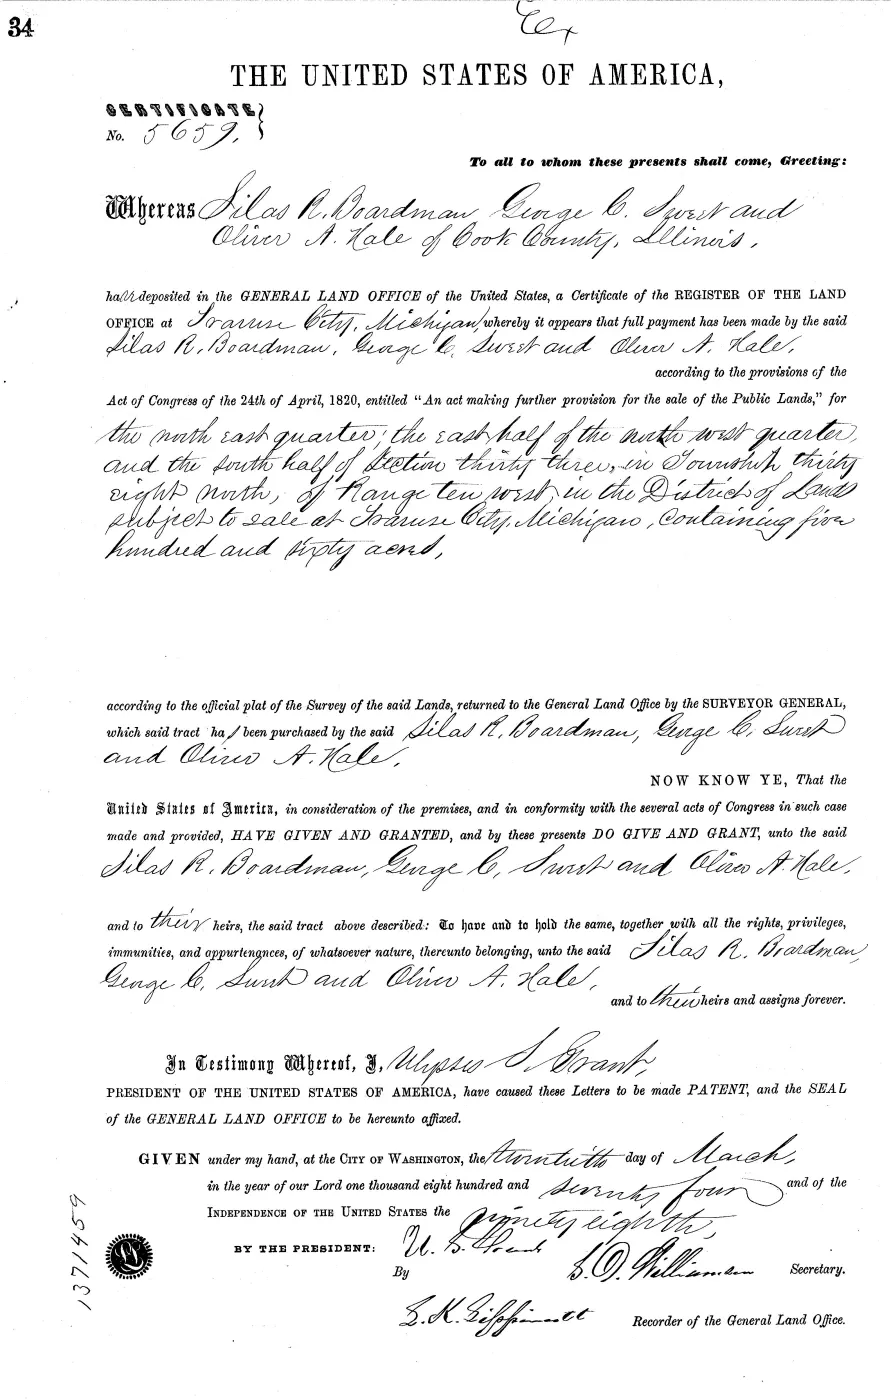 34
Ex
THE UNITED STATES OF AMERICA,
CERTIFICATE
No. 5659,
To all to whom these presents shall come, Greeting:
Whereas Silas R. Boardman George C. Sweet and
Oliver A. Hale of Cook County, Illinois,
have deposited in the GENERAL LAND OFFICE of the United States, a Certificate of the REGISTER OF THE LAND
OFFICE at Traverse City, Michigan, whereby it appears that full payment has been made by the said
Silas R. Boardman, George C. Sweet and Oliver A. Hale,
according to the provisions of the
Act of Congress of the 24th of April, 1820, entitled “An act making further provision for the sale of the Public Lands,” for
the north east quarter; the east half of the north west quarter,
and the south half of Section thirty three, in Township thirty
eight north, of Range ten west, in the District of Lands
subject to sale at Traverse City, Michigan, containing five
hundred and sixty acres,
according to the official plat of the Survey of the said Lands, returned to the General Land Office by the SURVEYOR GENERAL,
which said tract has been purchased by the said Silas R. Boardman, George C. Sweet
and Oliver A. Hale,
NOW KNOW YE, That the
United States of America, in consideration of the premises, and in conformity with the several acts of Congress in such case
made and provided, HAVE GIVEN AND GRANTED, and by these presents DO GIVE AND GRANT, unto the said
Silas R. Boardman, George C. Sweet and Oliver A. Hale,
and to their heirs, the said tract above described: To have and to hold the same, together with all the rights, privileges,
immunities, and appurtenances, of whatsoever nature, thereunto belonging, unto the said Silas R. Boardman,
George C. Sweet and Oliver A. Hale,
and to their heirs and assigns forever.
In Testimony Whereof, I, Ulysses S. Grant,
PRESIDENT OF THE UNITED STATES OF AMERICA, have caused these Letters to be made PATENT, and the SEAL
of the GENERAL LAND OFFICE to be hereunto affixed.
GIVEN under my hand, at the CITY OF WASHINGTON, the twentieth day of March,
in the year of our Lord one thousand eight hundred and seventy four and of the
INDEPENDENCE OF THE UNITED STATES the ninety eighth,
BY THE PRESIDENT: U. S. Grant
By S. D. Williamson Secretary.
L. K. Lippincott Recorder of the General Land Office.
1371459